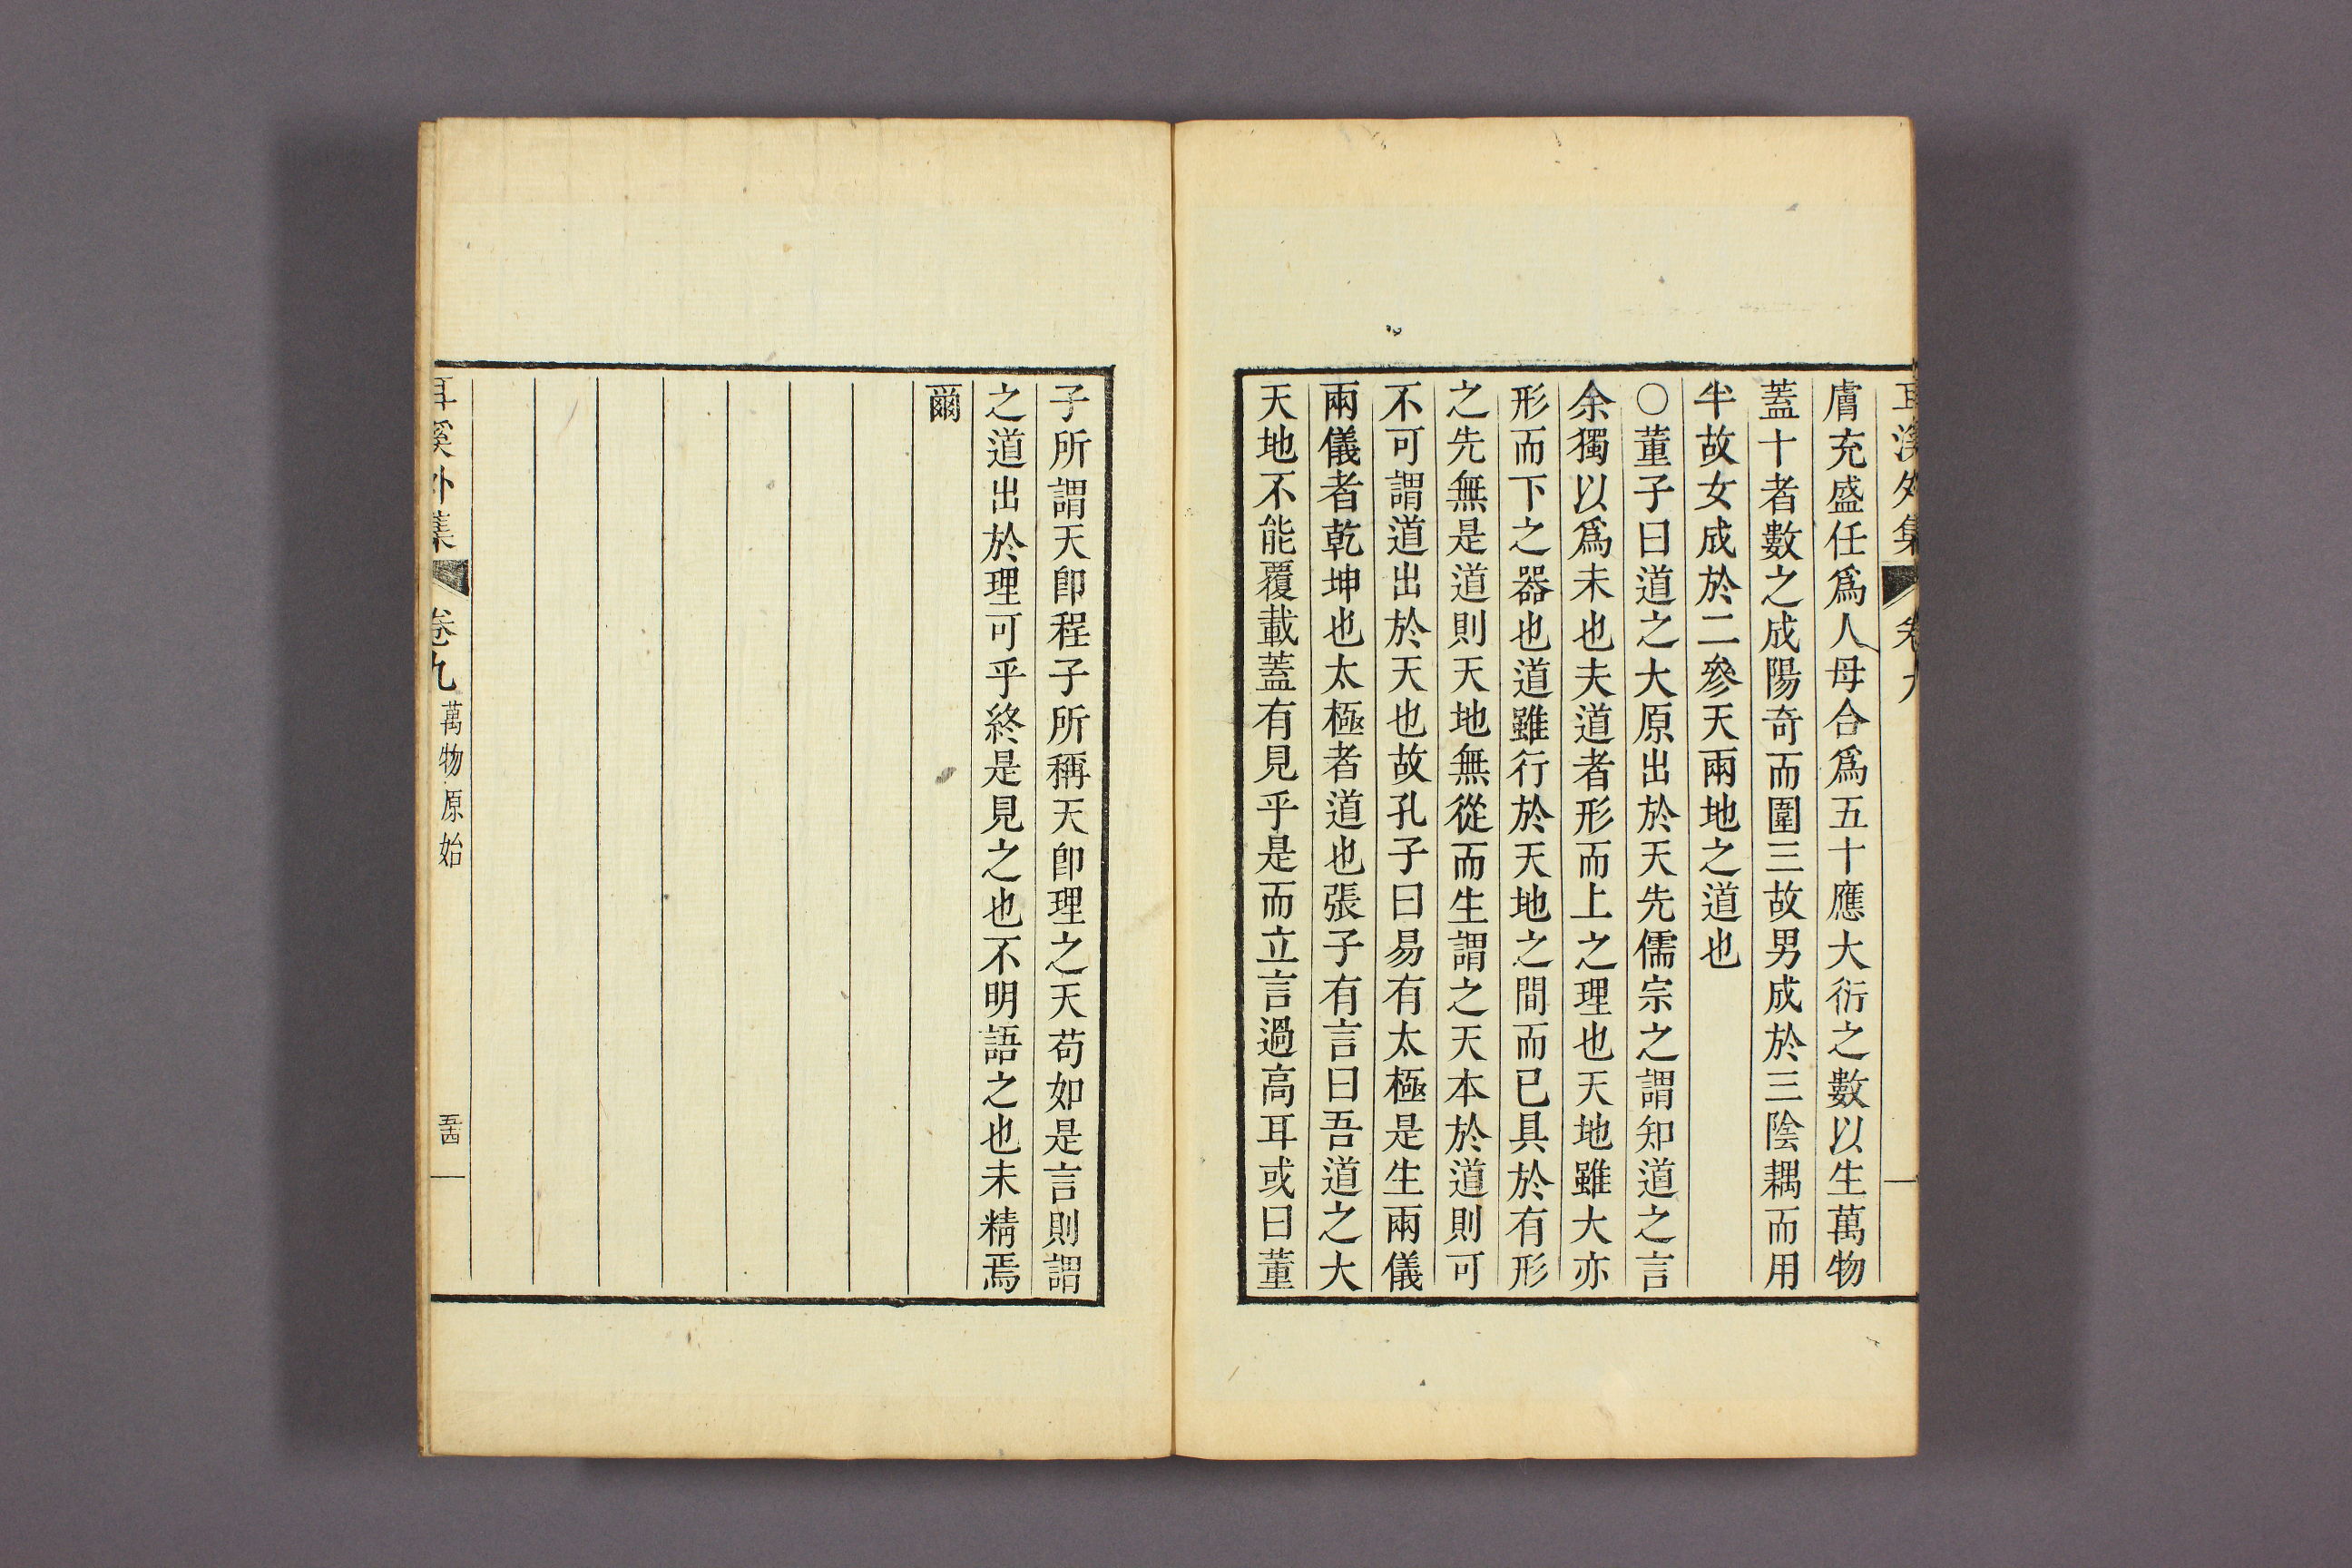 耳溪外集 卷九
膚充盛任爲人母合爲五十應大衍之數以生萬物
蓋十者數之成陽奇而圍三故男成於三陰耦而用
半故女成於二參天兩地之道也
〇董子曰道之大原出於天先儒宗之謂知道之言
余獨以爲未也夫道者形而上之理也天地雖大亦
形而下之器也道雖行於天地之間而已具於有形
之先無是道則天地無從而生謂之天本於道則可
不可謂道出於天也故孔子曰易有太極是生兩儀
兩儀者乾坤也太極者道也張子有言曰吾道之大
天地不能覆載蓋有見乎是而立言過高耳或曰董
子所謂天卽程子所稱天卽理之天苟如是言則謂
之道出於理可乎終是見之也不明語之也未精焉
爾
耳溪外集 卷九 萬物原始 五十四